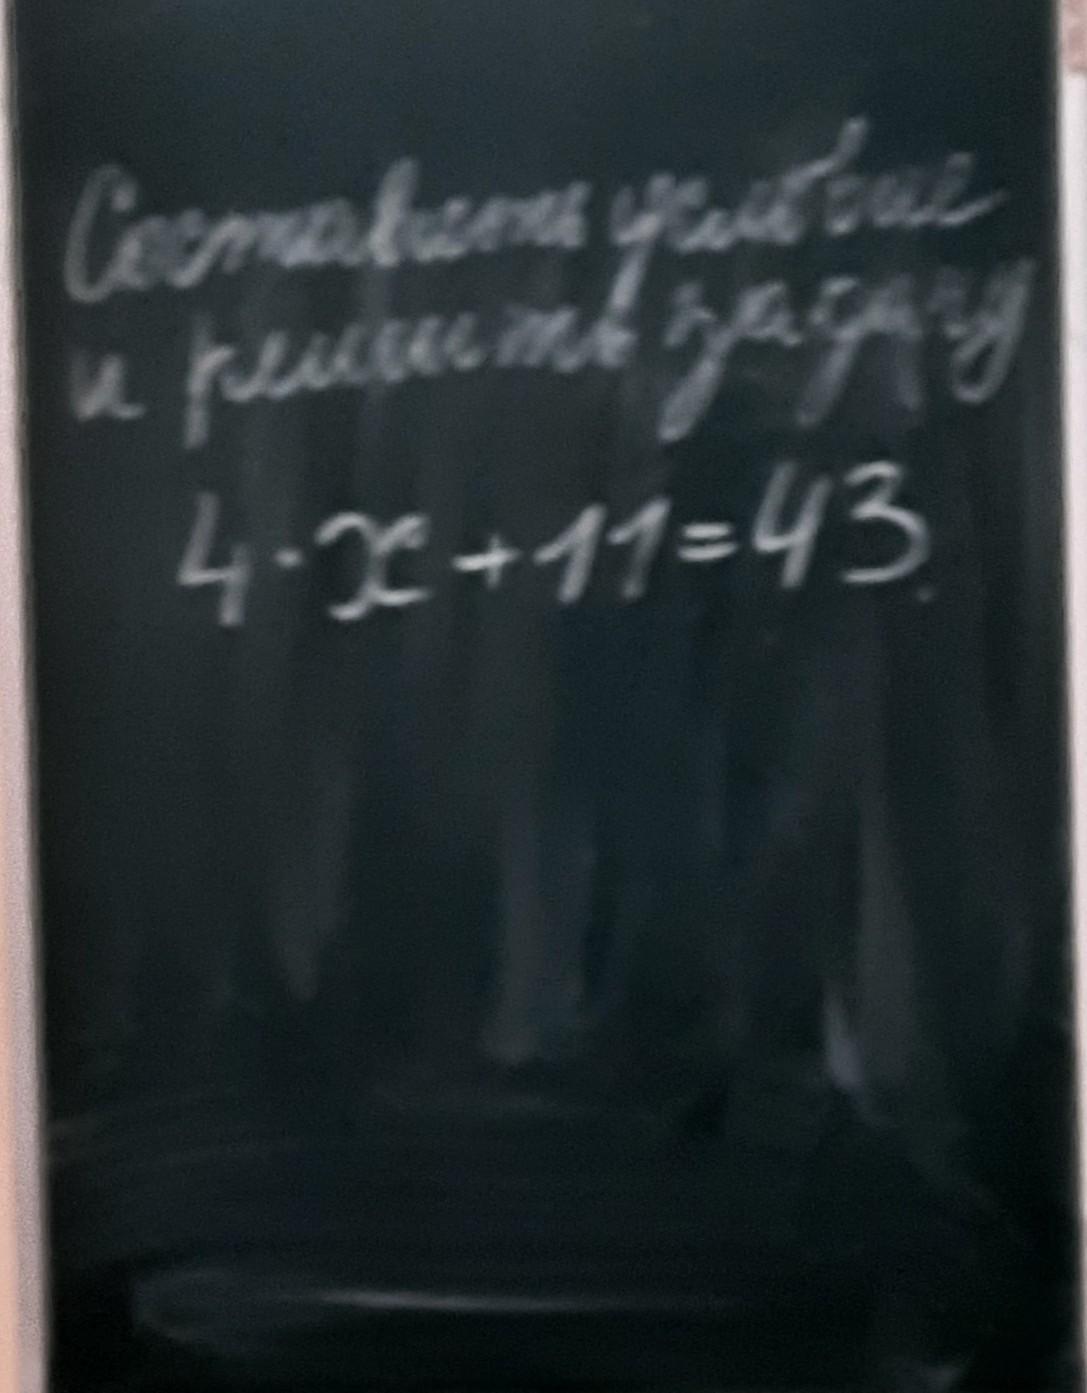 Составить условие
и решить задачу
4·x+11=43.